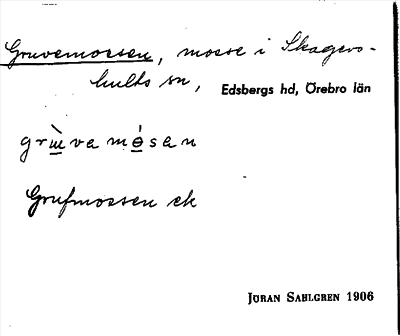 Gruvemossen, mosse i Skagers-
hults sn, Edsbergs hd, Örebro län
grɯ̀va mósan
Grufmossen ek
JÖRAN SAHLGREN 1906